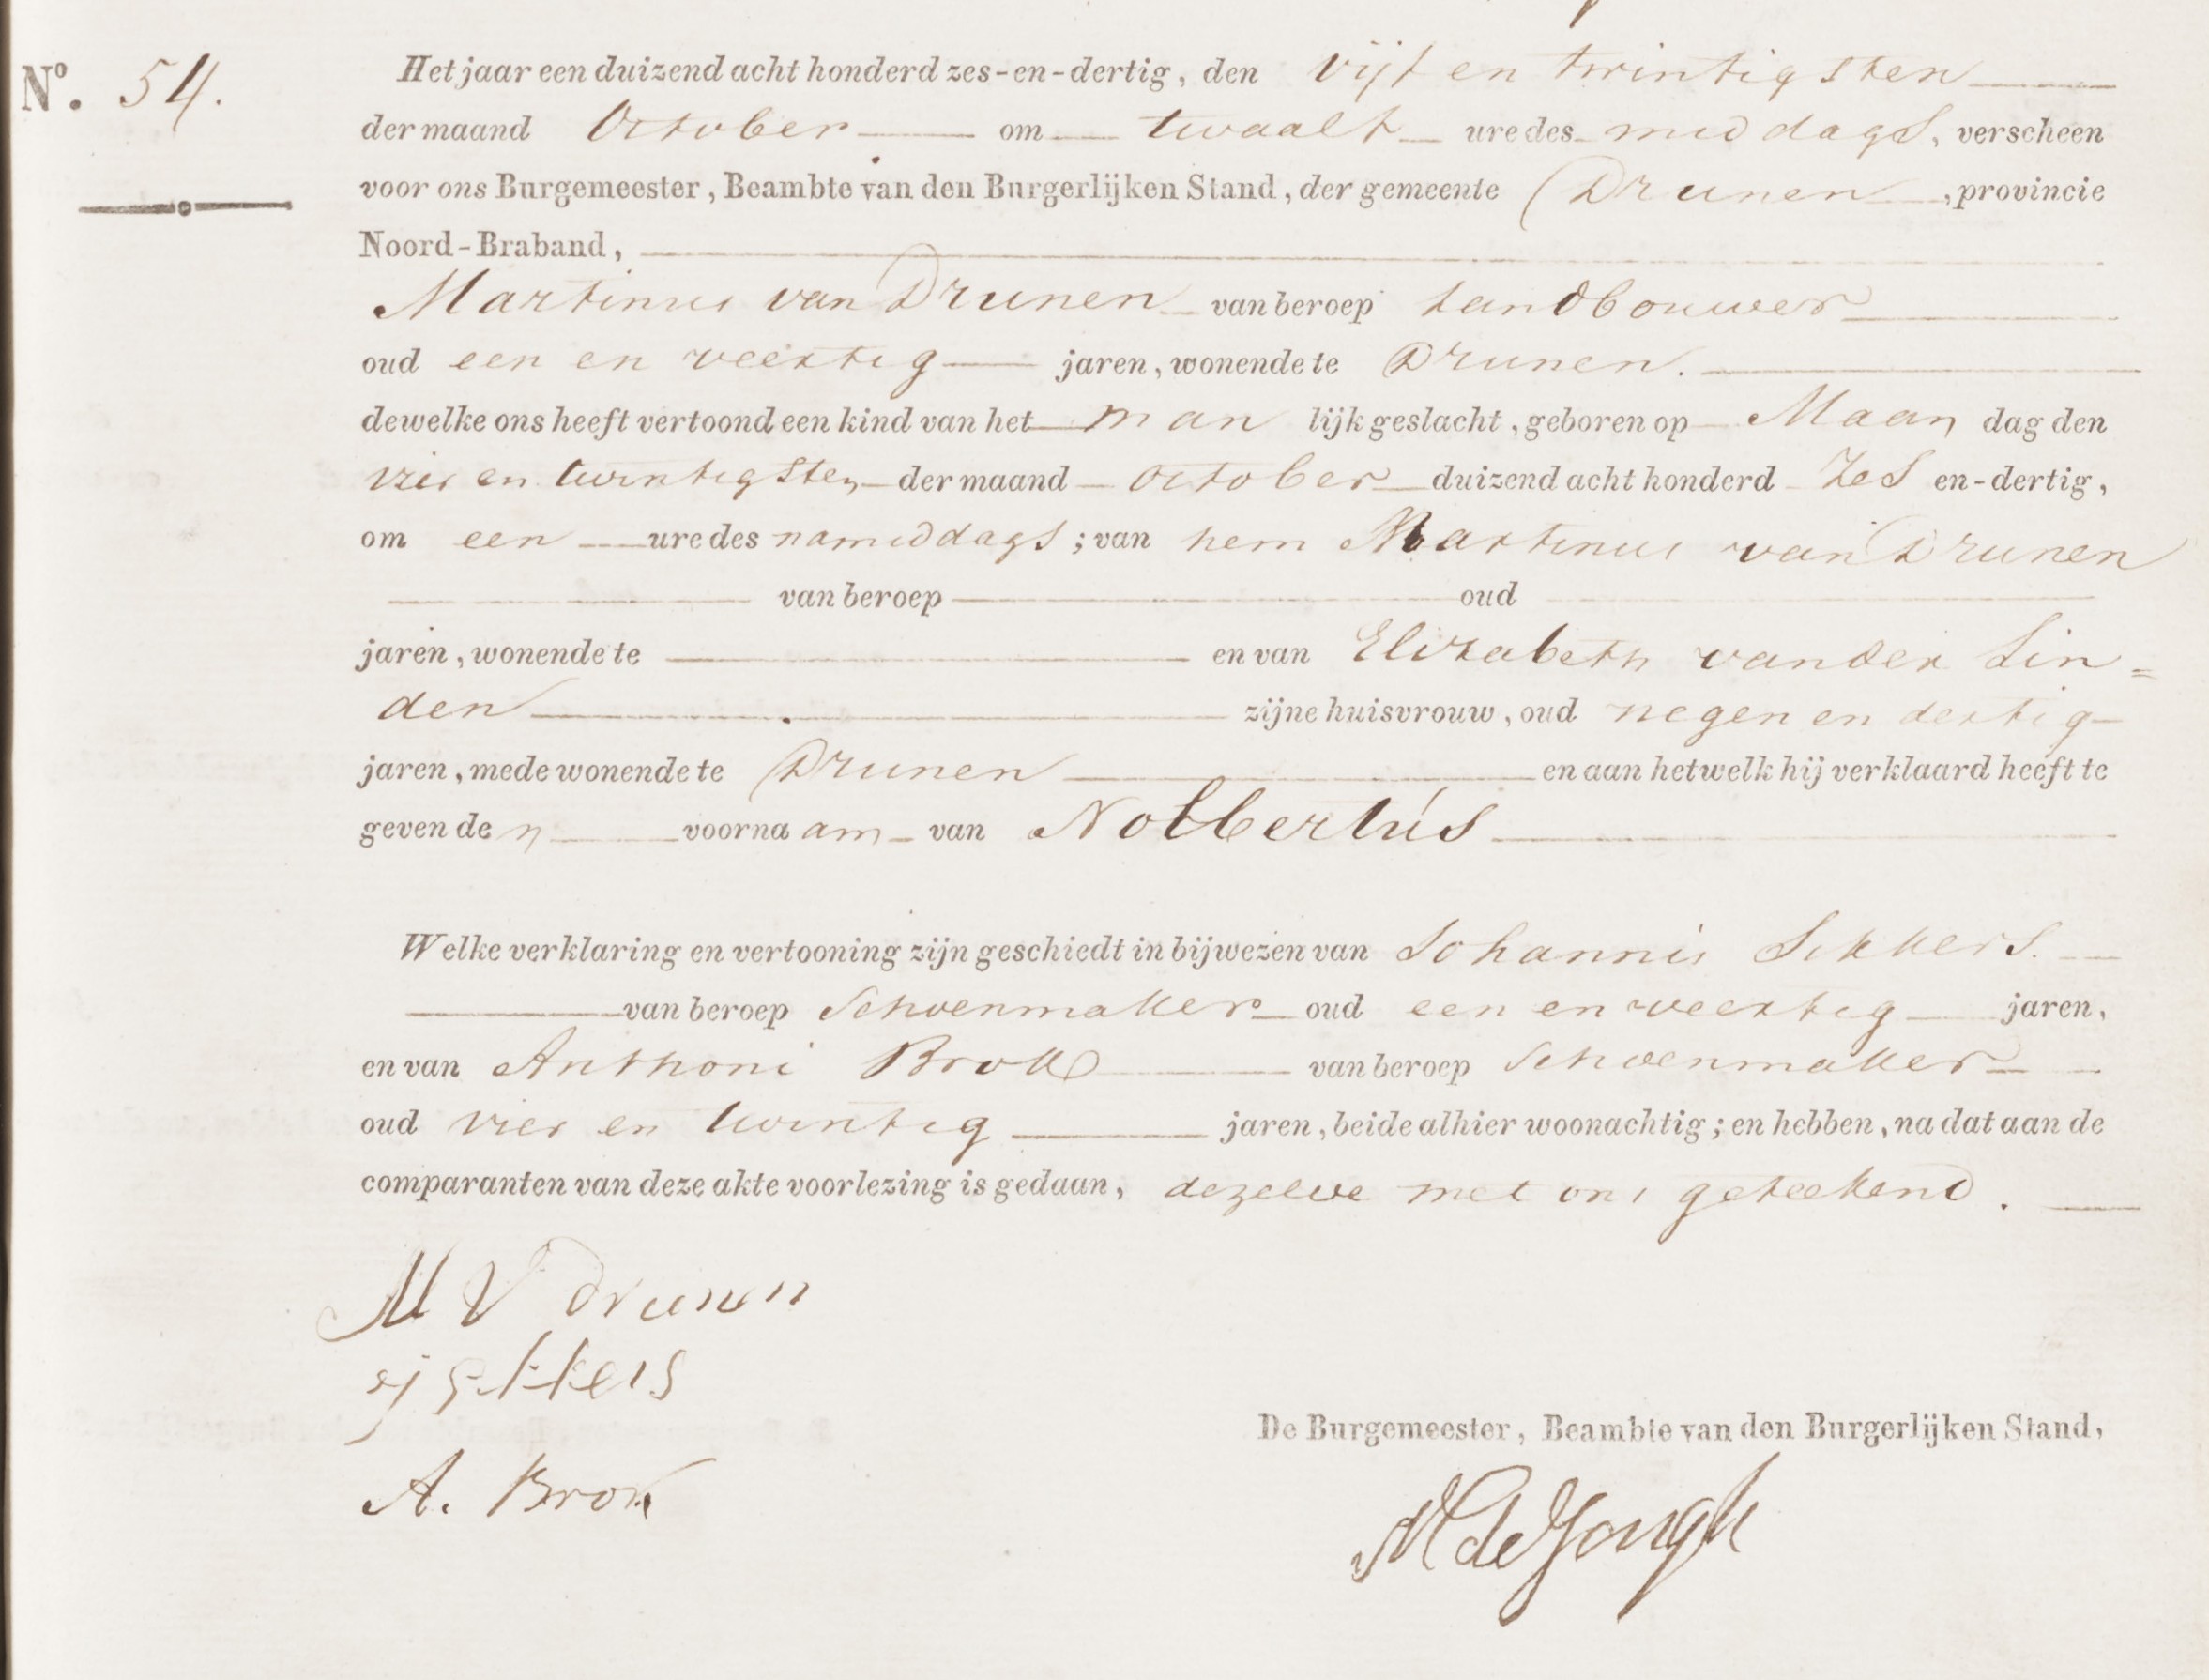 N°. 54.
Het jaar een duizend acht honderd zes-en-dertig, den vijf en twintigsten
der maand October om twaalf ure des middags, verscheen
voor ons Burgemeester, Beambte van den Burgerlijken Stand, der gemeente Drunen, provincie
Noord-Braband,
Martinus van Drunen van beroep Landbouwer
oud een en veertig jaren, wonende te Drunen.
dewelke ons heeft vertoond een kind van het man lijk geslacht, geboren op Maan dag den
vier en twintigsten der maand October duizend acht honderd Zes en-dertig,
om een ure des namiddags; van hem Martinus van Drunen
van beroep oud
jaren, wonende te en van Elizabeth van der Lin=
den zijne huisvrouw, oud negen en dertig
jaren, mede wonende te Drunen en aan hetwelk hij verklaard heeft te
geven de n voorna am van Nolbertús
Welke verklaring en vertooning zijn geschiedt in bijwezen van Johannis Sikkers.
van beroep Schoenmaker oud een en veertig jaren,
en van Anthoni Brok van beroep Schoenmaker
oud vier en twintig jaren, beide alhier woonachtig; en hebben, na dat aan de
comparanten van deze akte voorlezing is gedaan, dezelve met ons geteekend.
M V Drunen
Sikkers
A. Brok
De Burgemeester, Beambte van den Burgerlijken Stand,
de Jongh